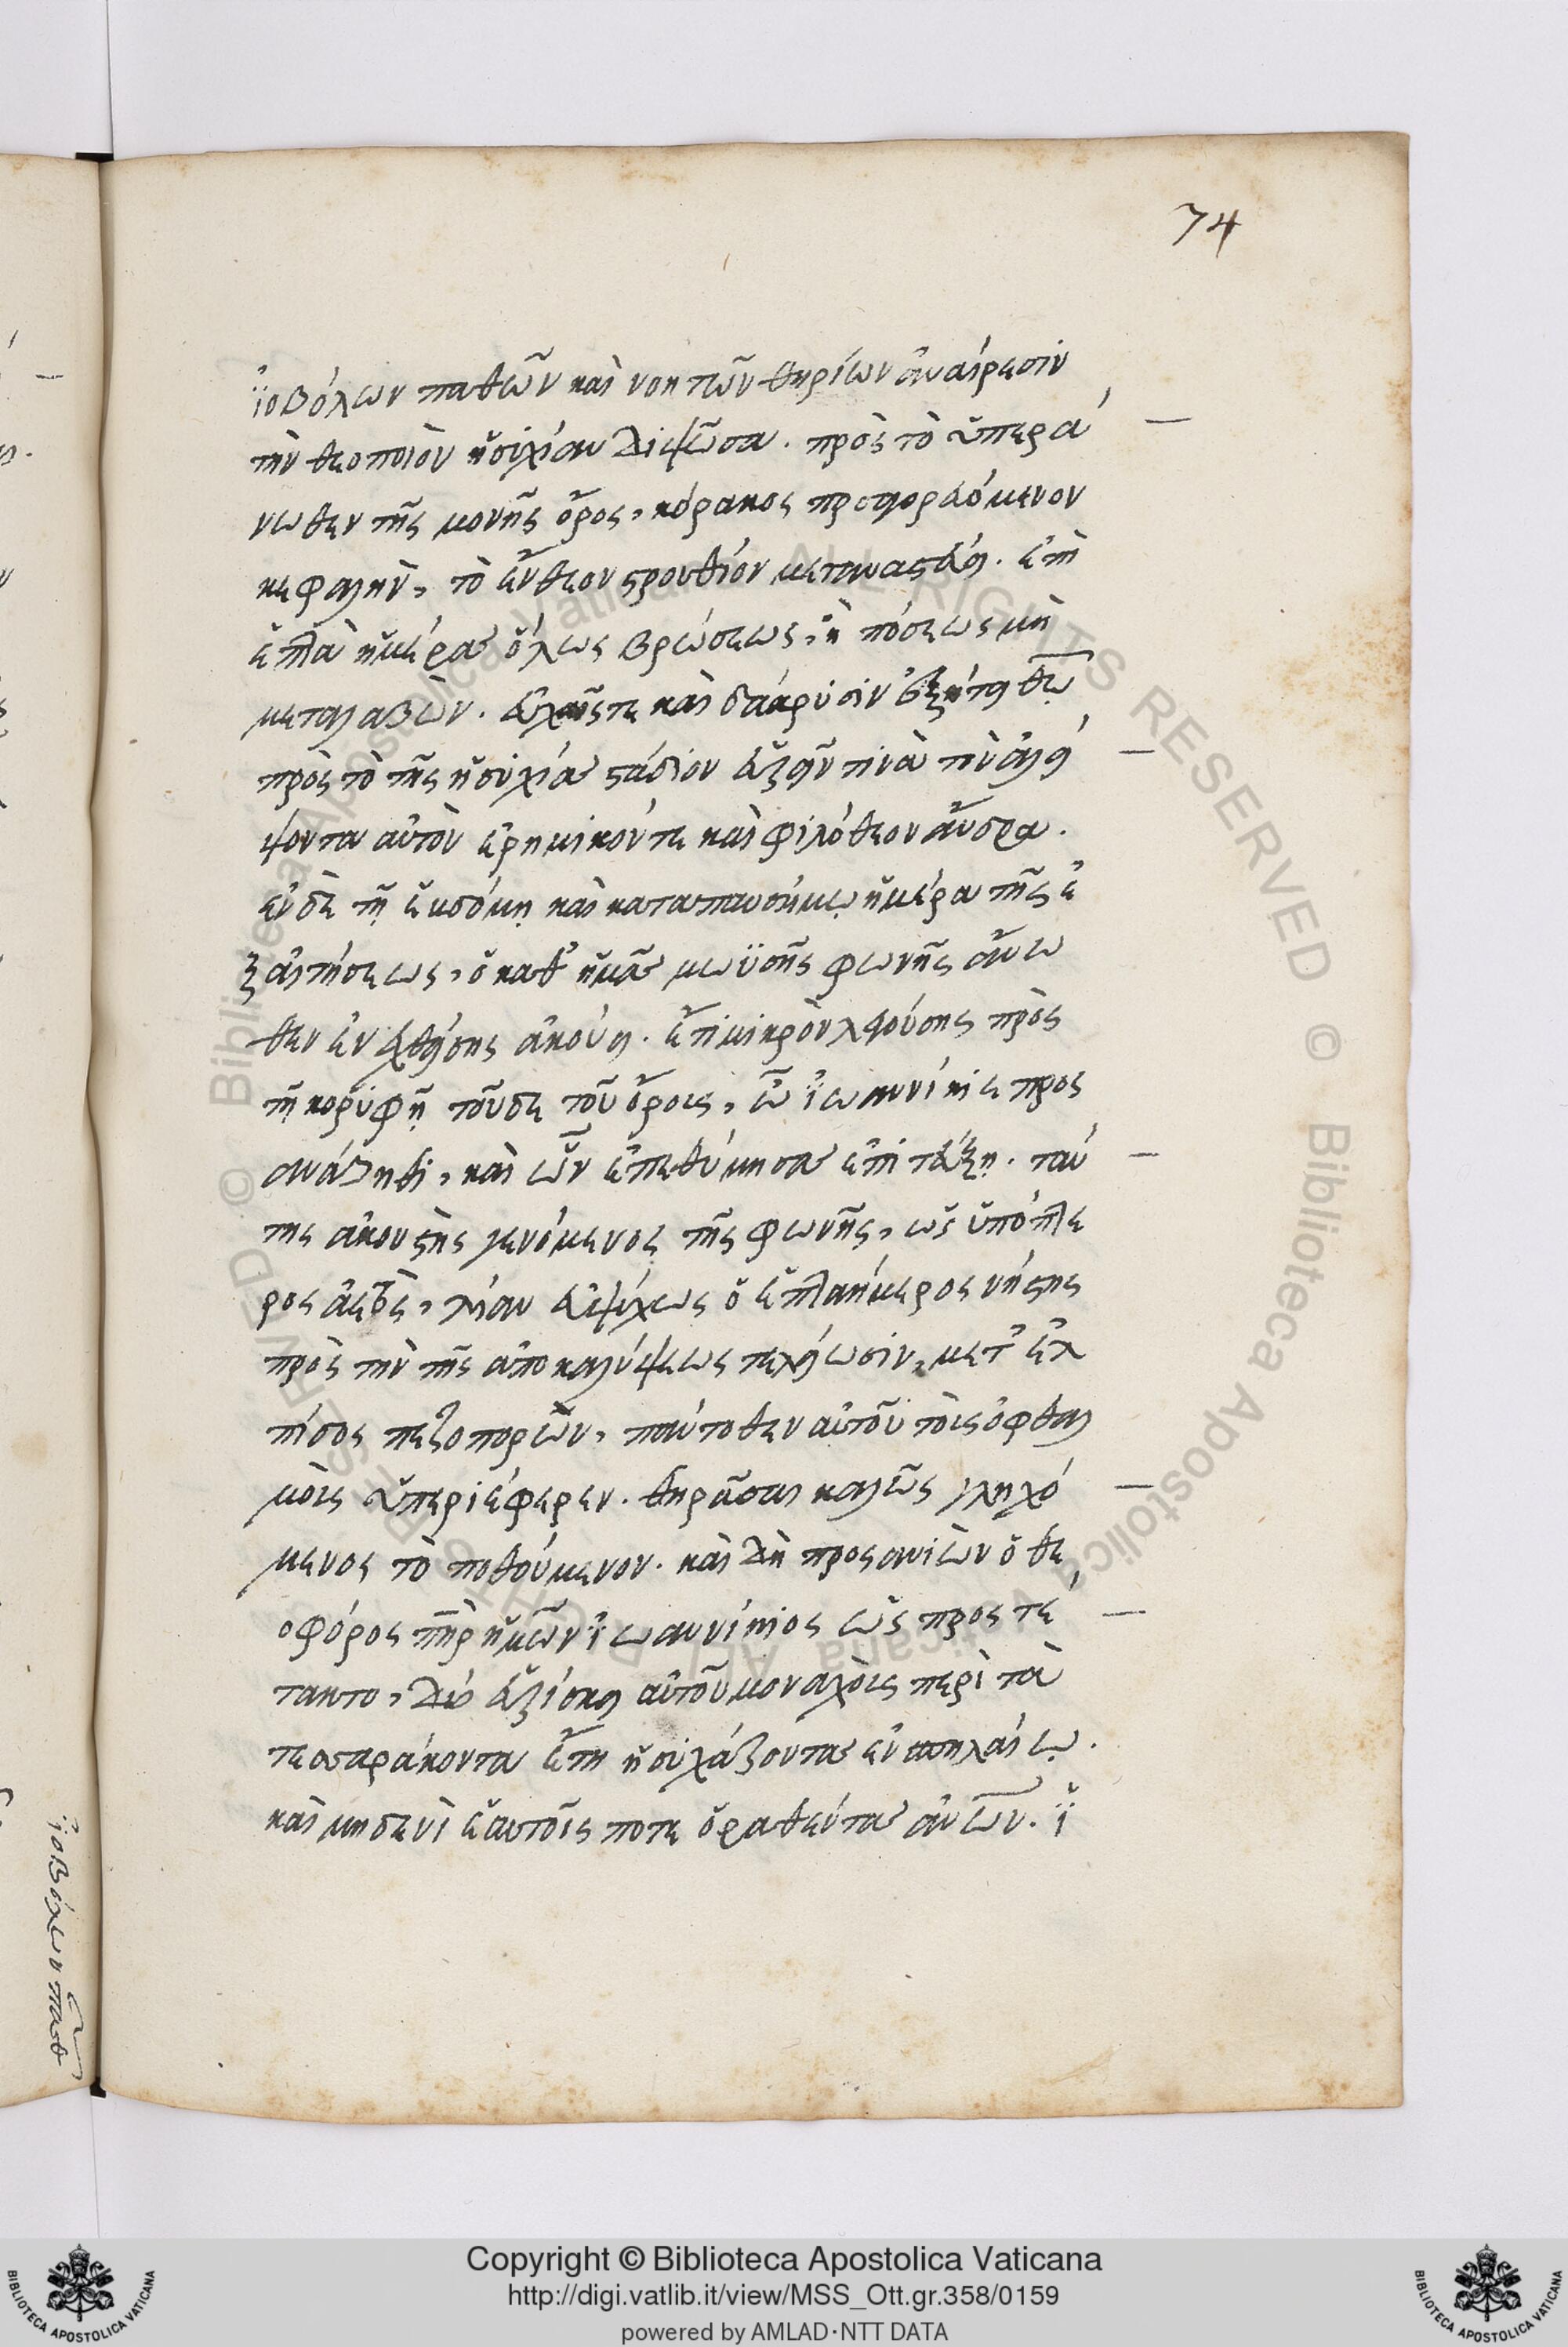 74
ἰοβόλων παθῶν καὶ νοητῶν θηρίων ἀναίρεσιν
τὴν θεοποιὸν ἡσυχίαν διψῶσα. πρὸς τὸ ὑπερά
νωθεν τῆς μονῆς ὄρος, κόρακος προσαγορευόμενον
κεφαλὴν, τὸ ἔνθεον στρουθίον μεταναστεύει. ἐπὶ
ἑπτὰ ἡμέρας ὅλως βρώσεως, ἢ πόσεως μὴ
μεταλαβὼν. εὐχαῖς τε καὶ δάκρυσιν ἐξῄτει θῶ
πρὸς τὸ τῆς ἡσυχίας στάδιον εὑρεῖν τινὰ τὸν ἀλεί
ψοντα αὐτὸν ἐρημικόν τε καὶ φιλόθεον ἄνδρα.
ἐν δὲ τῇ ἑβδόμῃ καὶ καταπαυσίμῳ ἡμέρα τῆς ἐ
ξαιτήσεως, ὁ καθ' ἡμᾶς μωϋσῆς φωνῆς ἄνω
θεν ἐνεχθείσης ἀκούει. ἐπὶ μικρὸν λεγούσης πρὸς
τῇ κορυφῇ τοῦδε τοῦ ὄρους, ὦ ἰωαννίκιε προς
ανάβηθι, καὶ ὧν ἐπεθύμησας ἐπιτεύξῃ. ταύ
της ἀκουστὴς γενόμενος τῆς φωνῆς, ὡς ὑπόπτε
ρος ἀετὸς, λίαν εὐψύχως ὁ ἑπταήμερος νήστης
πρὸς τὴν τῆς ἀποκαλύψεως τελείωσιν, μετ' ἐλ
πίδος πεζοπορῶν, πάντοθεν αὐτοῦ τοῖς ὀφθαλ
μοῖς ὑπεριέφερεν. θηρᾶσαι καλῶς γλιχό
μενος τὸ ποθούμενον. καὶ δὴ προσανιὼν ὁ θε
οφόρος πηρ ἡμῶν ἰωαννίκιος ὡς προςτέ
τακτο, δύο εὑρίσκει αὐτοῦ μοναχοὺς περὶ τὰ
τεσσαράκοντα ἔτη ἡσυχάζοντας ἐν σπηλαίῳ.
καὶ μηδενὶ ἑαυτοῖς ποτε ὁραθέντας ἀνῶν. ἱ
ἰοβόλων παθ
Copyright © Biblioteca Apostolica Vaticana
http://digi.vatlib.it/view/MSS_Ott.gr.358/0159
powered by AMLAD·NTT DATA